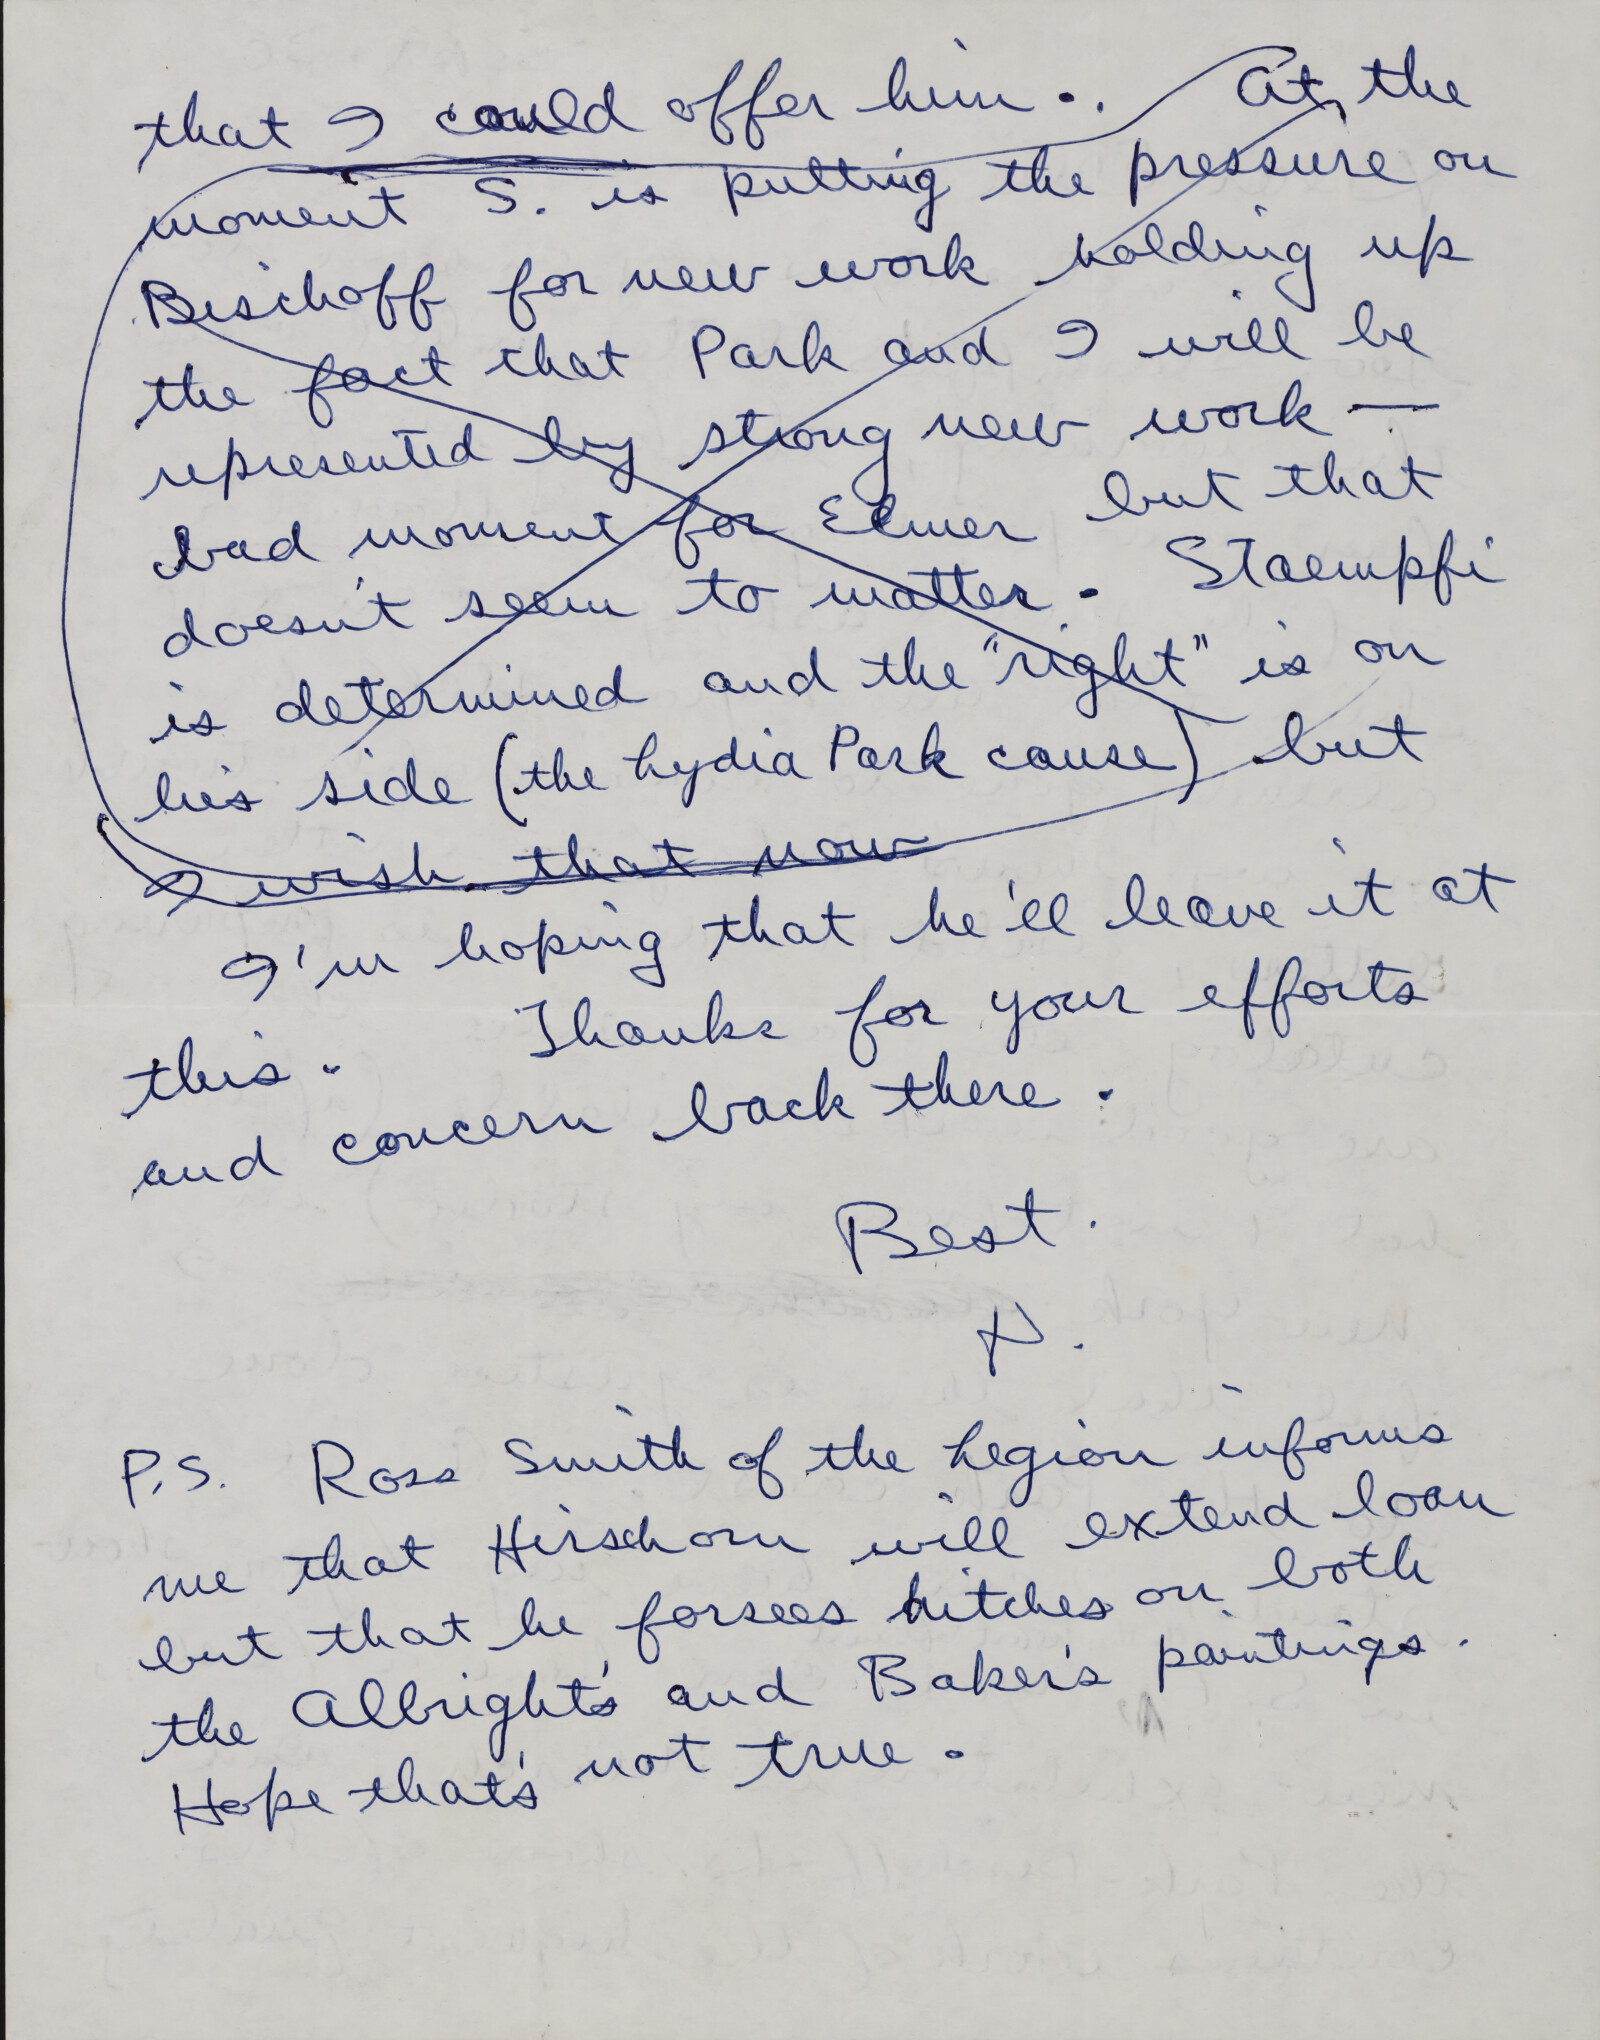 that I could offer him.. At the
moment S. is putting the pressure on
Bischoff for new work holding up
the fact that Park and I will be
represented by strong new work —
bad moment for Elmer but that
doesn't seem to matter. Staempfi
is determined and the "right" is on
his side (the Lydia Park cause) but
I wish that now
I'm hoping that he'll leave it at
this. Thanks for your efforts
and concern back there.
Best.
D.
P.S. Ross Smith of the Legion informs
me that Hirschorn will extend loan
but that he forsees hitches on both
the Albright's and Baker's paintings.
Hope that's not true.